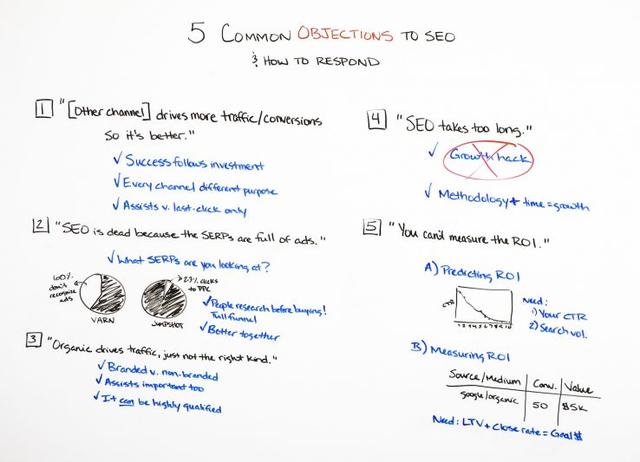 5 COMMON OBJECTIONS TO SEO
& HOW TO RESPOND
1 "[Other channel] drives more traffic/conversions
so it's better."
✓ Success follows investment
✓ Every channel different purpose
✓ Assists v. last-click only
2 "SEO is dead because the SERPs are full of ads."
✓ What SERPs are you looking at?
60%
don't
recognize
ads
VARN
clicks
to PPC
JUMPSHOT
✓ People research before buying!
Full funnel
✓ Better together
3 "Organic drives traffic, just not the right kind."
✓ Branded v. non-branded
✓ Assists important too
✓ It can be highly qualified
4 "SEO takes too long."
✓ Growth hack
✓ Methodology + time = growth
5 "You can't measure the ROI."
A) Predicting ROI
CTR
1 2 3 4 5 6 7 8 9 10
Need:
1) Your CTR
2) Search vol.
B) Measuring ROI
Source/Medium Conv. Value
google/organic 50 $5k
Need: LTV + Close rate = Goal $